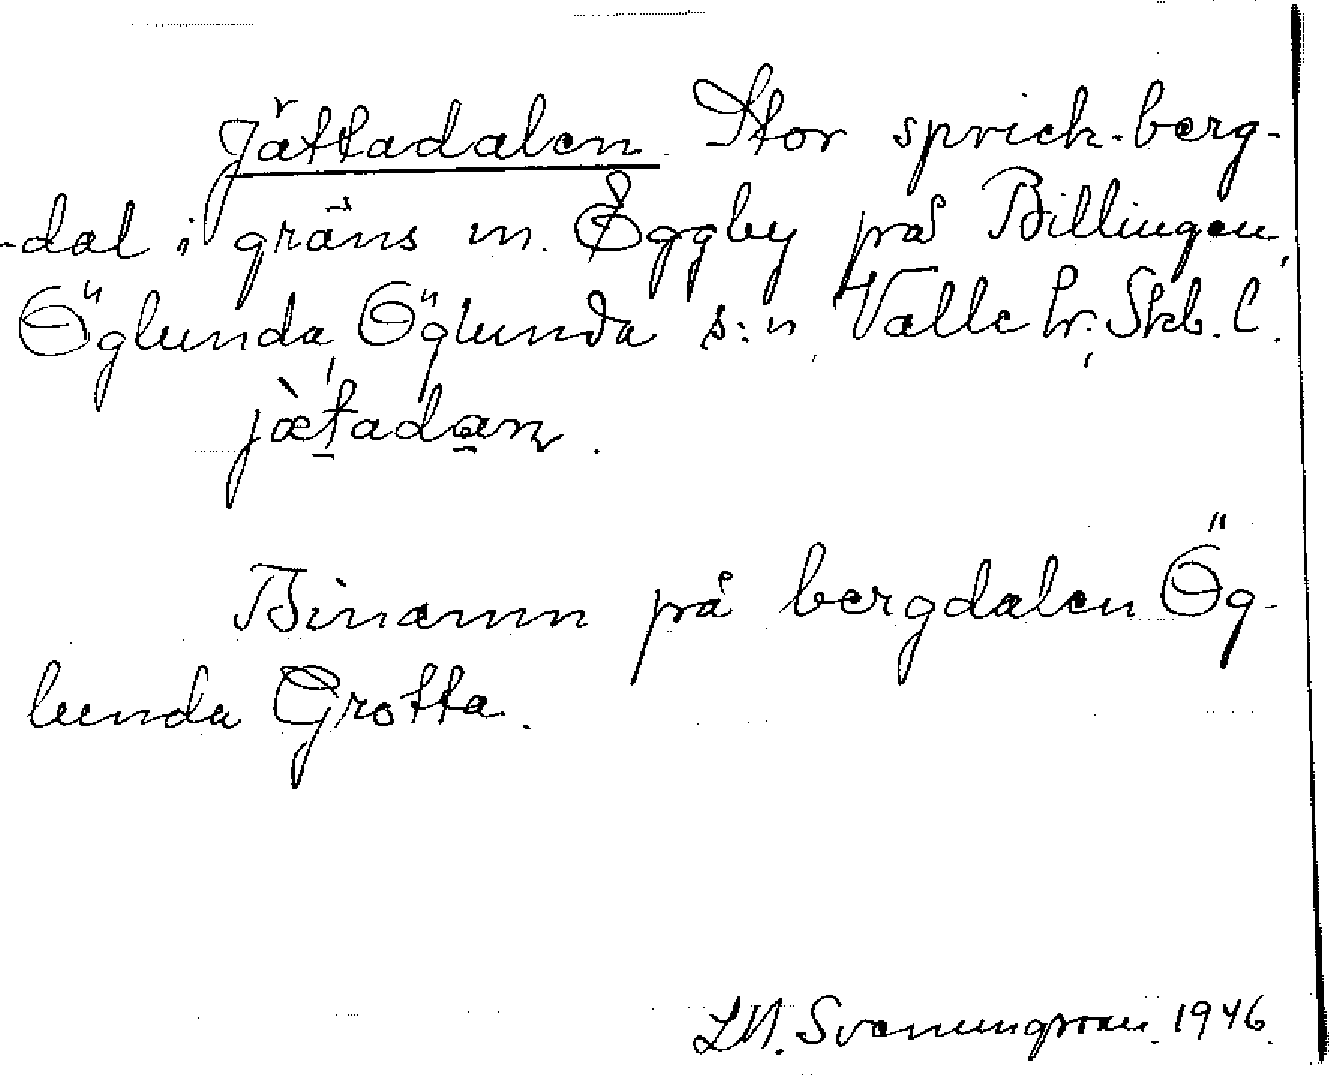 Jättadalen. Stor sprick-berg-
-dal i gräns m. Eggby på Billingen,
Öglunda, Öglunda s:n, Valle hr, Skb. l.
jæ̀tadan.
Binamn på bergdalen Ög-
lunda Grotta.
1946.